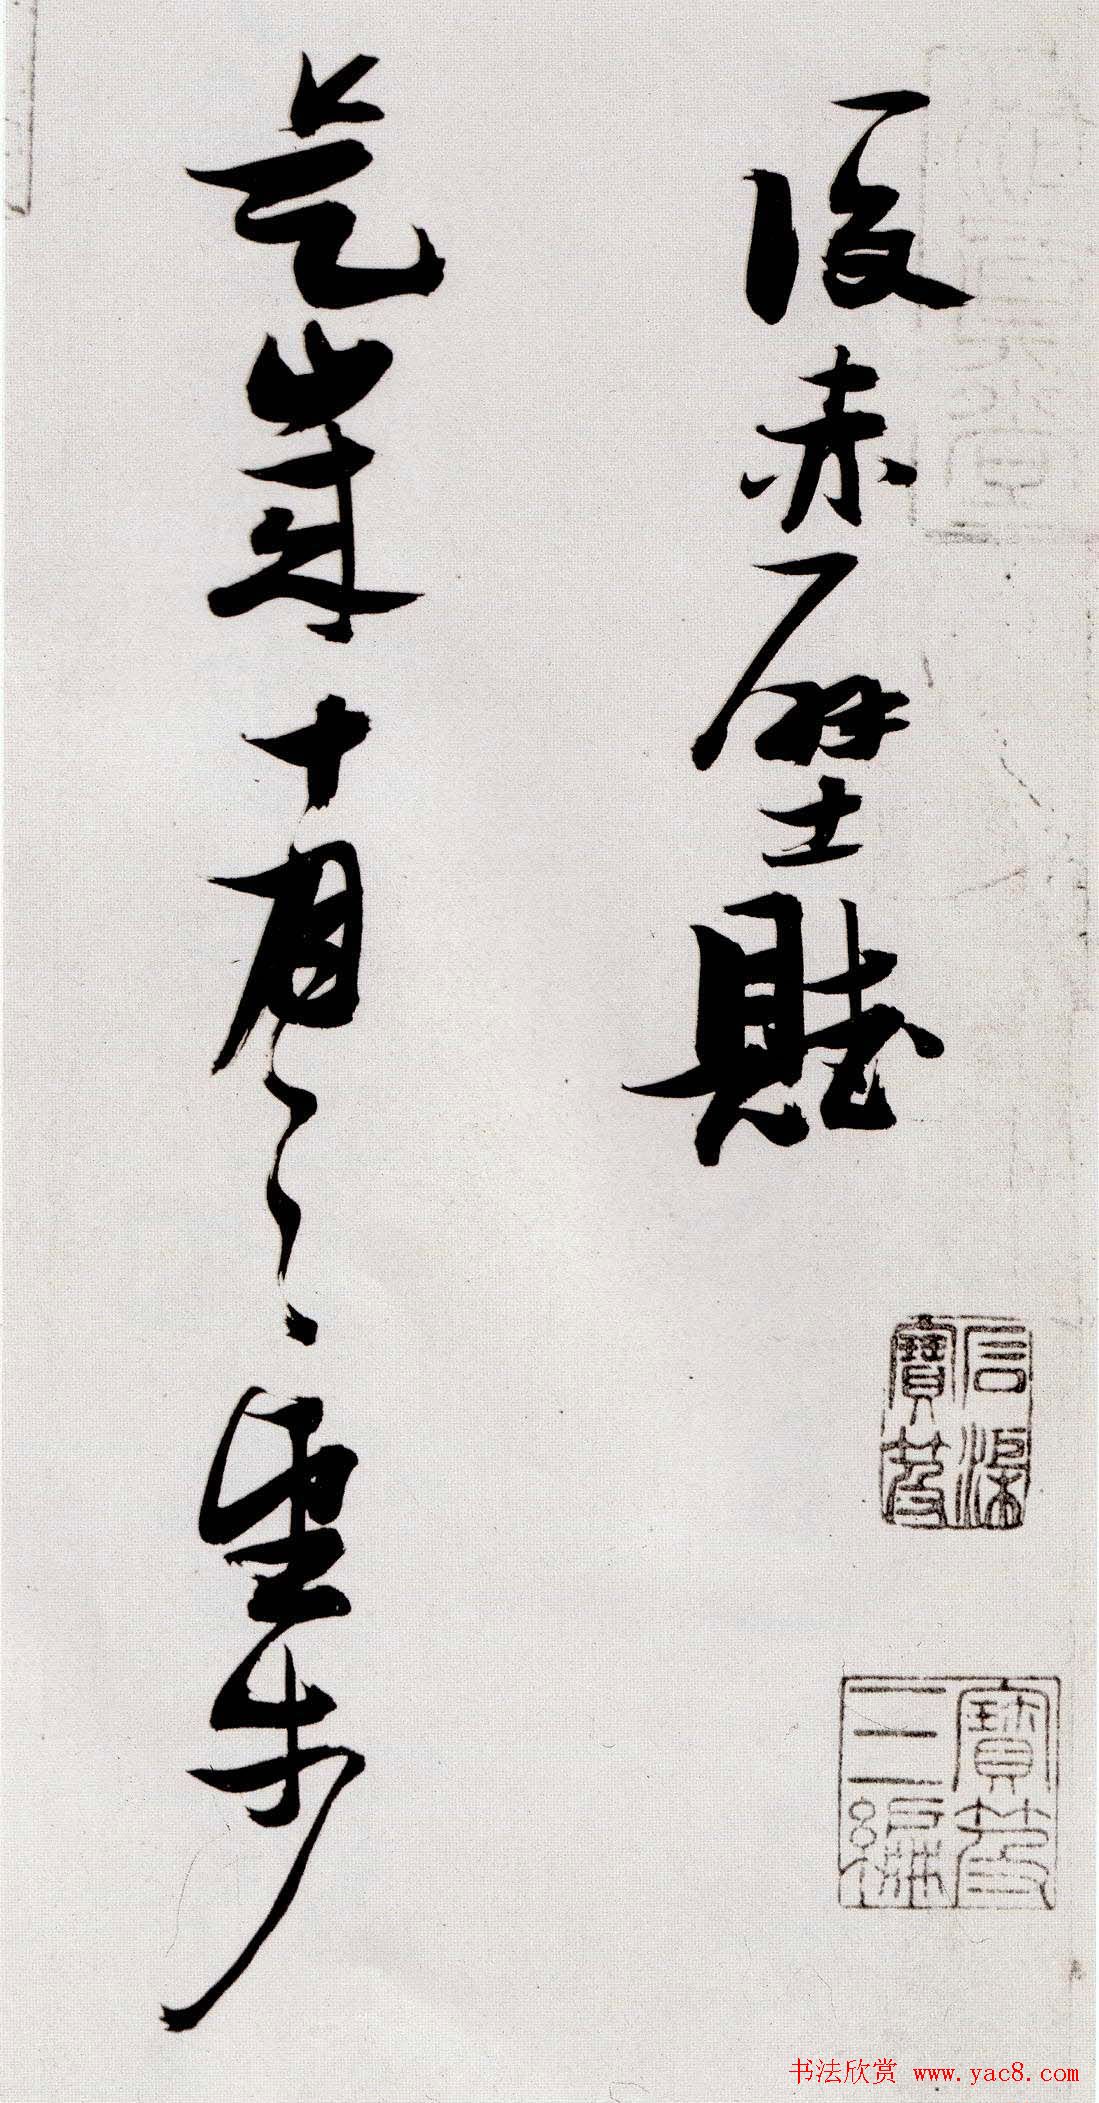 後赤壁賦
是歲十月之望步
石渠
寶笈
寶笈
三編
书法欣赏 www.yac8.com